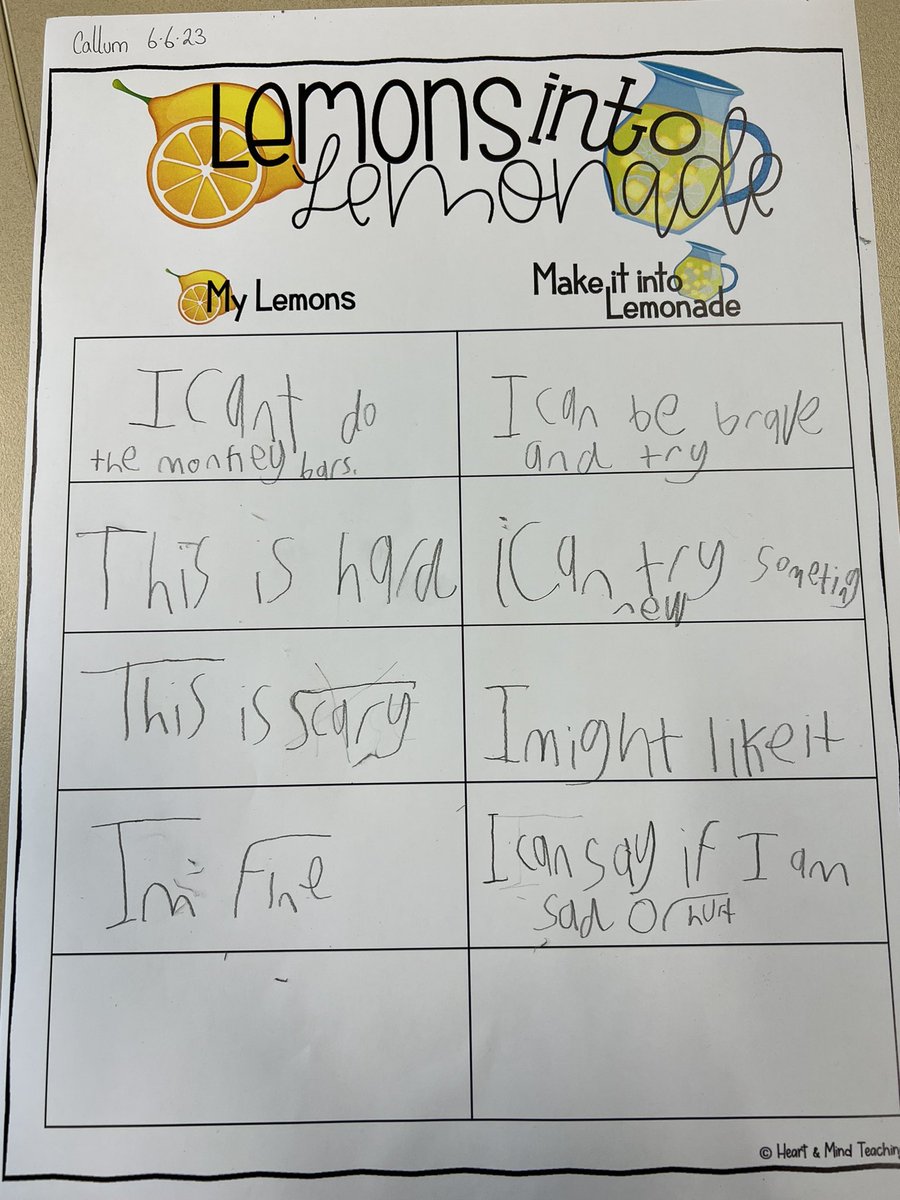 Callum 6.6.23
Lemons into
Lemonade
My Lemons
Make it into
Lemonade
I Cant do
the monkey bars.
I can be brave
and try
This is hard
i Can try someting
new
This is scary
I might like it
Im Fine
I can say if I am
sad Or hurt
© Heart & Mind Teaching